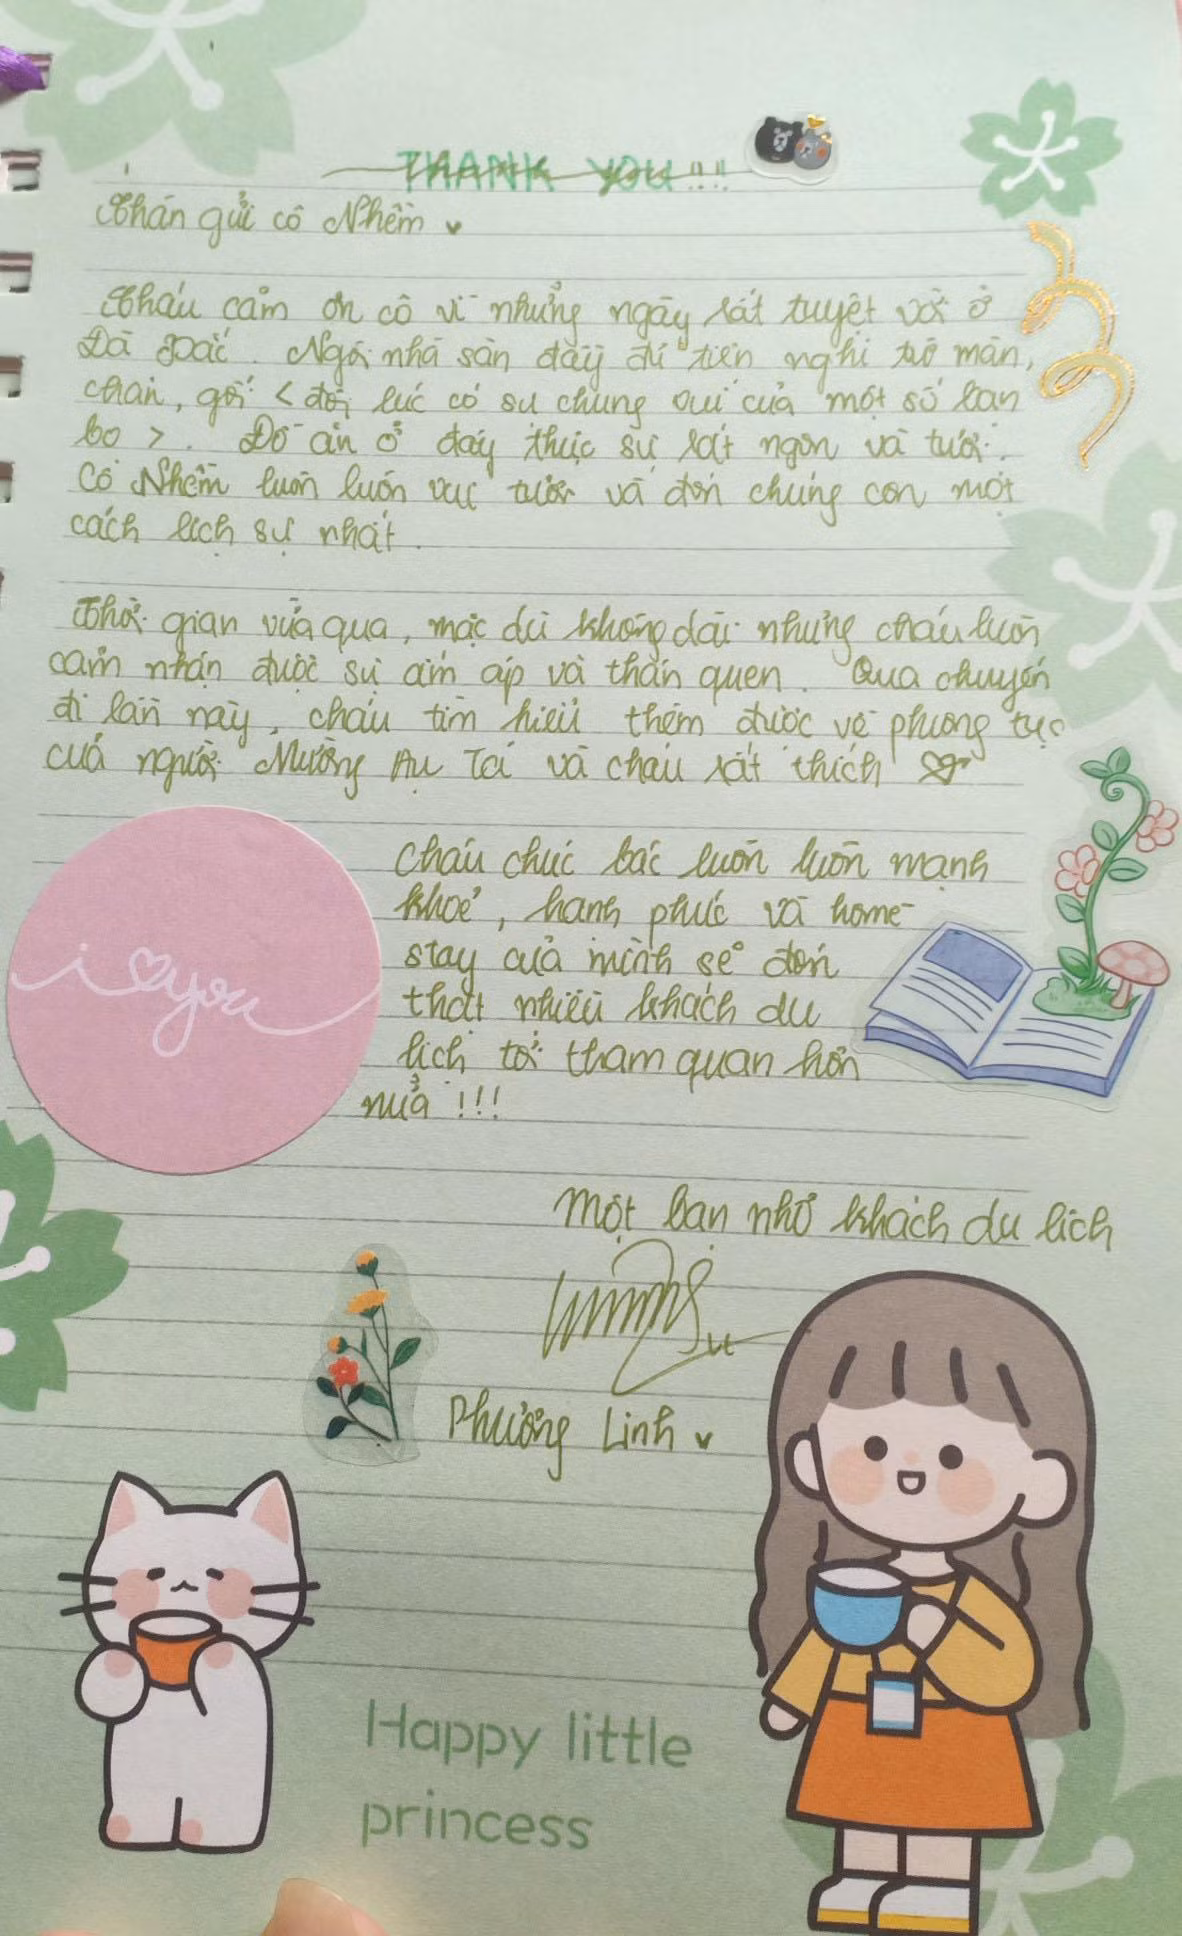 THANK YOU !!!
Thân gửi cô Nhềm
Cháu cảm ơn cô vì những ngày rất tuyệt vời ở
Đà Bắc. Ngôi nhà sàn đầy đủ tiện nghi từ màn,
chăn, gối < đôi lúc có sự chung vui của một số bạn
bọ >. Đồ ăn ở đây thực sự rất ngon và tươi.
Cô Nhềm luôn luôn vui tươi và đón chúng con một
cách lịch sự nhất.
Thời gian vừa qua, mặc dù không dài nhưng cháu luôn
cảm nhận được sự ấm áp và thân quen. Qua chuyến
đi lần này, cháu tìm hiểu thêm được về phong tục
của người Mường Au Tá và cháu rất thích
Cháu chúc bác luôn luôn mạnh
khoẻ, hạnh phúc và home-
stay của mình sẽ đón
thật nhiều khách du
lịch tới tham quan hơn
nữa !!!
i you
Một bạn nhỏ khách du lịch
Phương Linh
Happy little
princess